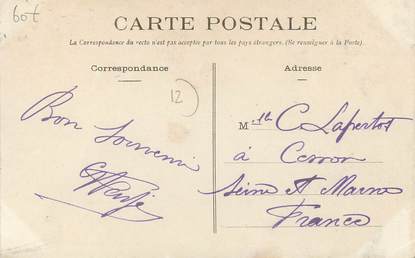 60t
CARTE POSTALE
La Correspondance du recto n'est pas acceptée par tous les pays étrangers. (Se renseigner à la Poste).
Correspondance
Adresse
12
Bon Souvenir
Mlle C Lapertot
à Cesson
Seine et Marne
France